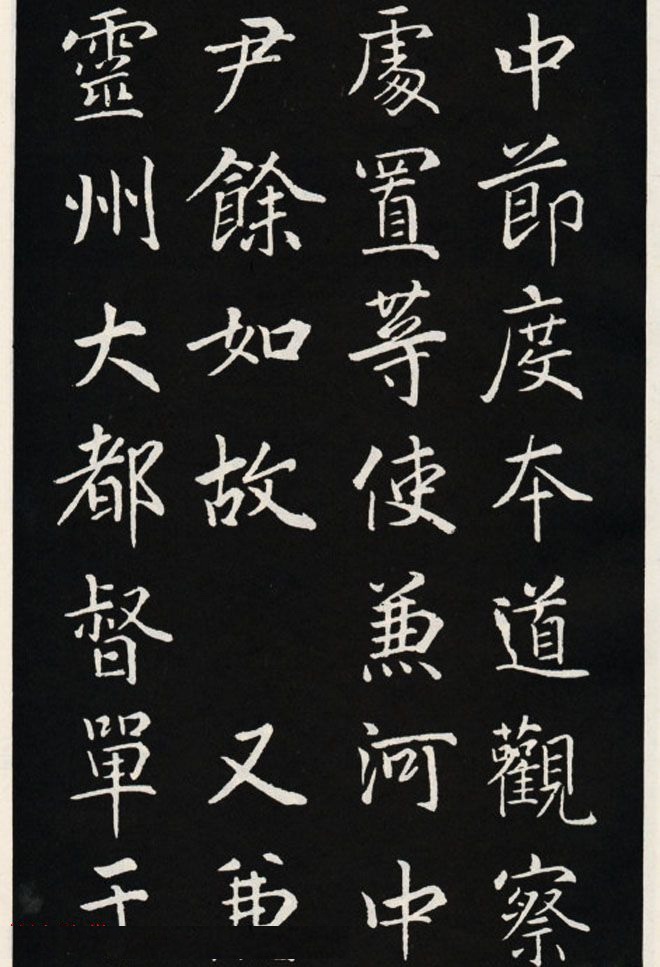 中節度本道觀察
處置等使兼河中
尹餘如故 又
靈州大都督單于